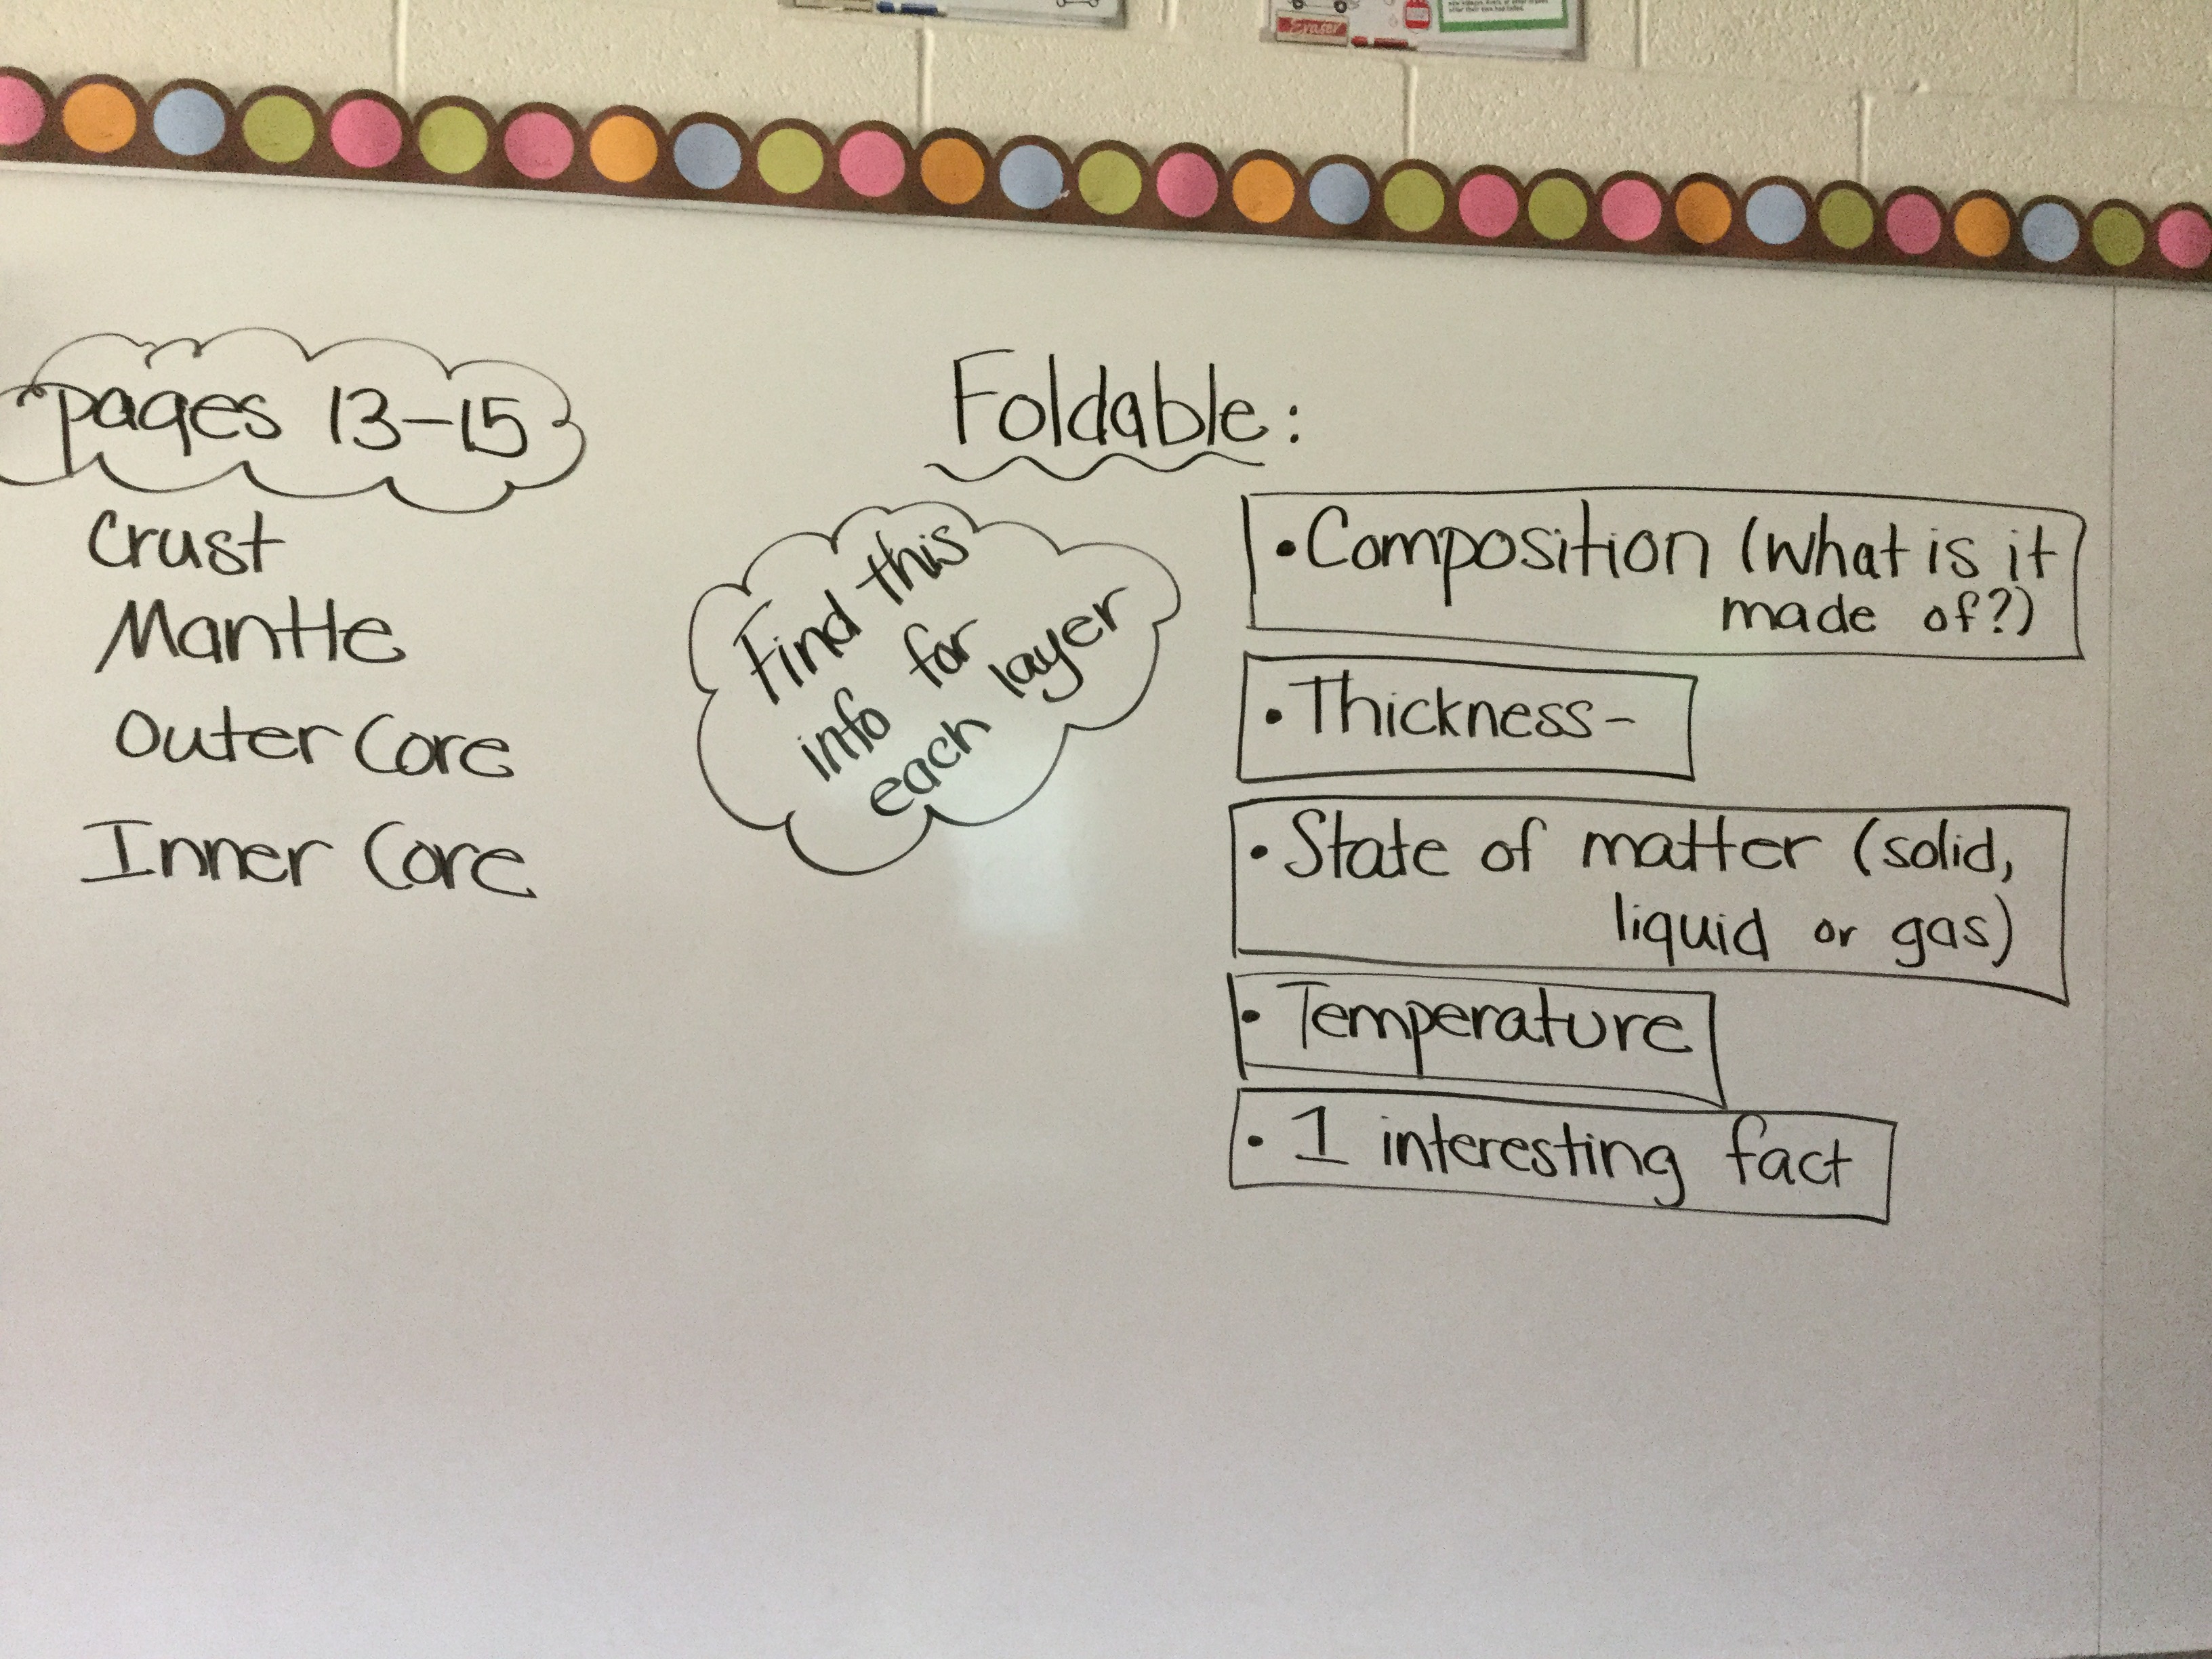 Eraser
pages 13-15
Crust
Mantle
Outer Core
Inner Core
Foldable:
Find this
info for
each layer
• Composition (what is it
made of?)
• Thickness-
• State of matter (solid,
liquid or gas)
• Temperature
• 1 interesting fact